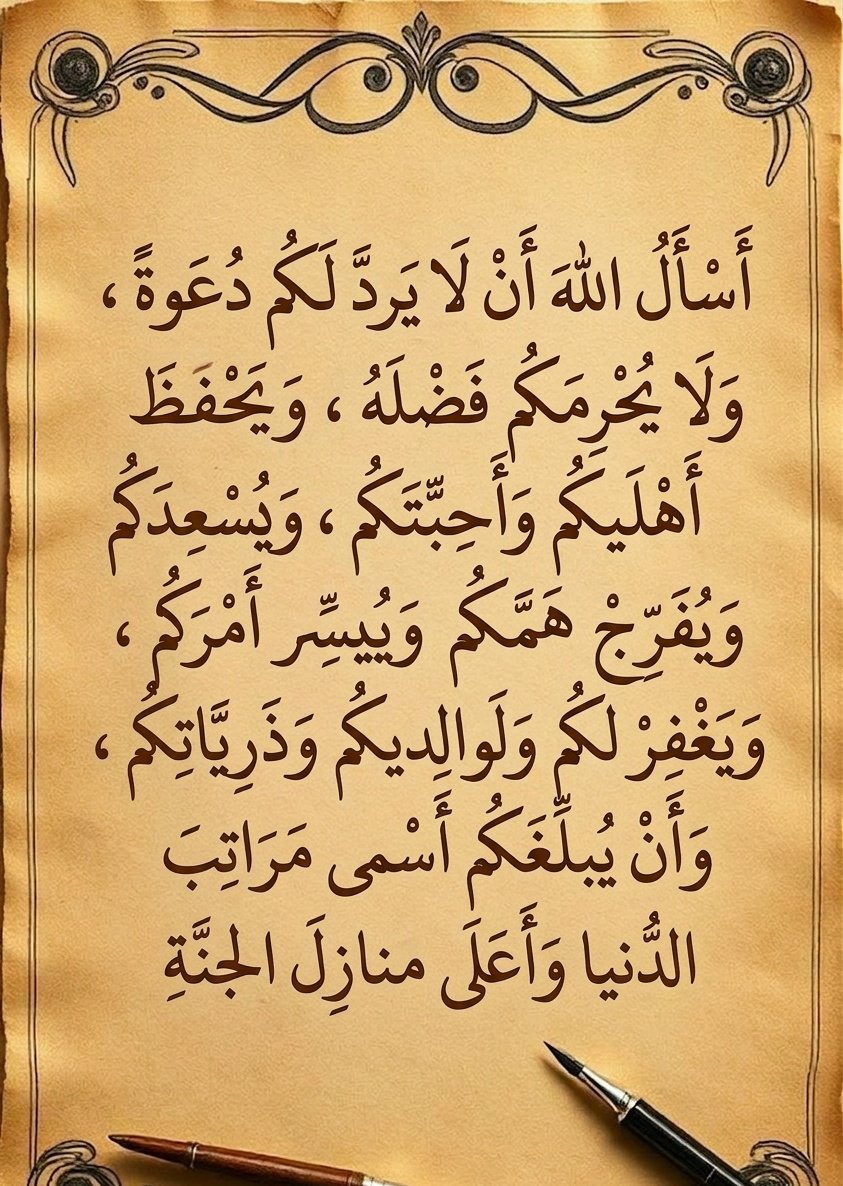 أَسْأَلُ اللهَ أَنْ لَا يَردَّ لَكُم دُعَوةً ،
وَلَا يُحْرِمَكُم فَضْلَهُ ، وَيَحْفَظَ
أَهْلَيكُم وَأَحِبّتَكُم ، وَيُسْعِدَكُم
وَيُفَرِّجْ هَمَّكُم وَيُيسِّر أَمْرَكُم ،
وَيَغْفِرْ لكُم وَلَوالِديكُم وَذَرِيَّاتِكُم ،
وَأَنْ يُبلِّغَكُم أَسْمى مَرَاتِبَ
الدُّنيا وَأَعَلَى منازِلَ الجنَّةِ